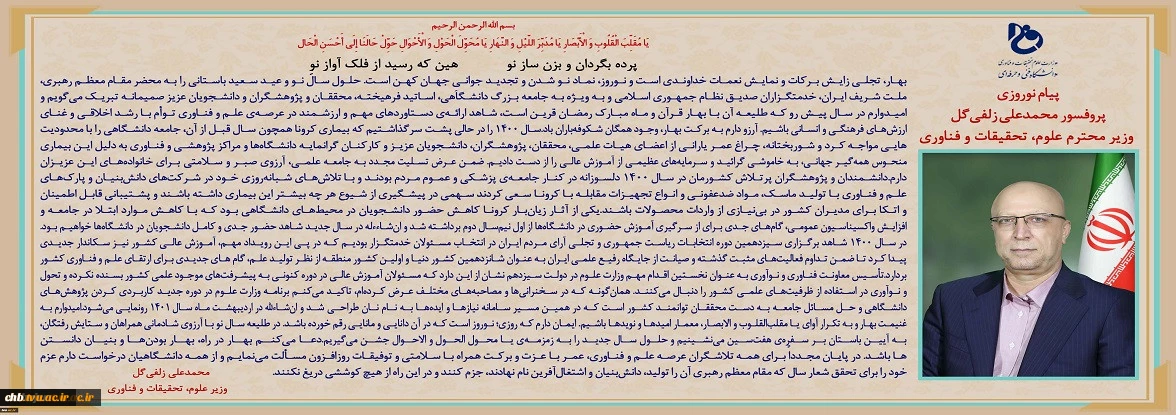 بسم الله الرحمن الرحیم
یَا مُقَلِّبَ الْقُلُوبِ وَ الْأَبْصَارِ یَا مُدَبِّرَ اللَّیْلِ وَ النَّهَارِ یَا مُحَوِّلَ الْحَوْلِ وَ الْأَحْوَالِ حَوِّلْ حَالَنَا إِلَی أَحْسَنِ الْحَالِ
پرده بگردان و بزن ساز نو هین که رسید از فلک آواز نو
وزارت علوم، تحقیقات و فناوری
دانشگاه فنی و حرفه‌ای
پیام نوروزی
پروفسور محمدعلی زلفی‌گل
وزیر محترم علوم، تحقیقات و فناوری
بهار، تجلی زایش برکات و نمایش نعمات خداوندی است و نوروز، نماد نو شدن و تجدید جوانی جهان کهن است. حلول سال نو و عید سعید باستانی را به محضر مقام معظم رهبری،
ملت شریف ایران، خدمتگزاران صدیق نظام جمهوری اسلامی و به ویژه به جامعه بزرگ دانشگاهی، اساتید فرهیخته، محققان و پژوهشگران و دانشجویان عزیز صمیمانه تبریک می‌گویم و
امیدوارم در سال پیش رو که طلیعه آن با بهار قرآن و ماه مبارک رمضان قرین است، شاهد ارائه‌ی دستاوردهای مهم و ارزشمند در عرصه‌ی علم و فناوری توأم با رشد اخلاقی و غنای
ارزش‌های فرهنگی و انسانی باشیم. آرزو دارم به برکت بهار، وجود همگان شکوفه‌باران باد.سال ۱۴۰۰ را در حالی پشت سر گذاشتیم که بیماری کرونا همچون سال قبل از آن، جامعه دانشگاهی را با محدودیت
هایی مواجه کرد و شوربختانه، چراغ عمر یارانی از اعضای هیات علمی، محققان، پژوهشگران، دانشجویان عزیز و کارکنان گرانمایه دانشگاه‌ها و مراکز پژوهشی و فناوری به دلیل این بیماری
منحوس همه‌گیر جهانی، به خاموشی گرائید و سرمایه‌های عظیمی از آموزش عالی را از دست دادیم. ضمن عرض تسلیت مجدد به جامعه علمی، آرزوی صبر و سلامتی برای خانواده‌های این عزیزان
دارم.دانشمندان و پژوهشگران پرتلاش کشورمان در سال ۱۴۰۰ دلسوزانه در کنار جامعه‌ی پزشکی و عموم مردم بودند و با تلاش‌های شبانه‌روزی خود در شرکت‌های دانش‌بنیان و پارک‌های
علم و فناوری با تولید ماسک، مواد ضدعفونی و انواع تجهیزات مقابله با کرونا سعی کردند سهمی در پیشگیری از شیوع هر چه بیشتر این بیماری داشته باشند و پشتیبانی قابل اطمینان
و اتکا برای مدیران کشور در بی‌نیازی از واردات محصولات باشند.یکی از آثار زیان‌بار کرونا کاهش حضور دانشجویان در محیط‌های دانشگاهی بود که با کاهش موارد ابتلا در جامعه و
افزایش واکسیناسیون عمومی، گام‌های جدی برای از سرگیری آموزش حضوری در دانشگاه‌ها از اول نیم‌سال دوم برداشته شد و ان‌شاءالله در سال جدید شاهد حضور جدی و کامل دانشجویان در دانشگاه‌ها خواهیم بود.
در سال ۱۴۰۰ شاهد برگزاری سیزدهمین دوره انتخابات ریاست جمهوری و تجلی آرای مردم ایران در انتخاب مسئولان خدمتگزار بودیم که در پی این رویداد مهم، آموزش عالی کشور نیز سکاندار جدیدی
پیدا کرد تا ضمن تداوم فعالیت‌های مثبت گذشته و صیانت از جایگاه رفیع علمی ایران به عنوان شانزدهمین کشور دنیا و اولین کشور منطقه از نظر تولید علم، گام های جدیدی برای ارتقای علم و فناوری کشور
بردارد.تأسیس معاونت فناوری و نوآوری به عنوان نخستین اقدام مهم وزارت علوم در دولت سیزدهم نشان از این دارد که مسئولان آموزش عالی در دوره کنونی به پیشرفت‌های موجود علمی کشور بسنده نکرده و تحول
و نوآوری در استفاده از ظرفیت‌های علمی کشور را دنبال می‌کنند. همان‌گونه که در سخنرانی‌ها و مصاحبه‌های مختلف عرض کرده‌ام، تاکید می‌کنم برنامه وزارت علوم در دوره جدید کاربردی کردن پژوهش‌های
دانشگاهی و حل مسائل جامعه به دست محققان توانمند کشور است که در همین مسیر سامانه نیازها و ایده‌ها به نام نان طراحی شد و ان‌شاالله در اردیبهشت ماه سال ۱۴۰۱ رونمایی می‌شود.امیدوارم به
غنیمت بهار و به تکرار آوای یا مقلب‌القلوب و الابصار، معمار امیدها و نویدها باشیم. ایمان دارم که روزی؛ نوروز است که در آن دانایی و مانایی رقم خورده باشد. در طلیعه سال نو با آرزوی شادمانی همراهان و ستایش رفتگان،
به آیین باستان بر سفره‌ی هفت‌سین می‌نشینیم و حلول سال جدید را به زمزمه‌ی یا محول الحول و الاحوال جشن می‌گیریم.دعا می‌کنم بهار در راه، بهار بودن‌ها و بنیان دانستن
ها باشد. در پایان مجددا برای همه تلاشگران عرصه علم و فناوری، عمر با عزت و برکت همراه با سلامتی و توفیقات روزافزون مسألت می‌نمایم و از همه دانشگاهیان درخواست دارم عزم
خود را برای تحقق شعار سال که مقام معظم رهبری آن را تولید، دانش‌بنیان و اشتغال‌آفرین نام نهادند، جزم کنند و در این راه از هیچ کوششی دریغ نکنند.
محمدعلی زلفی‌گل
وزیر علوم، تحقیقات و فناوری